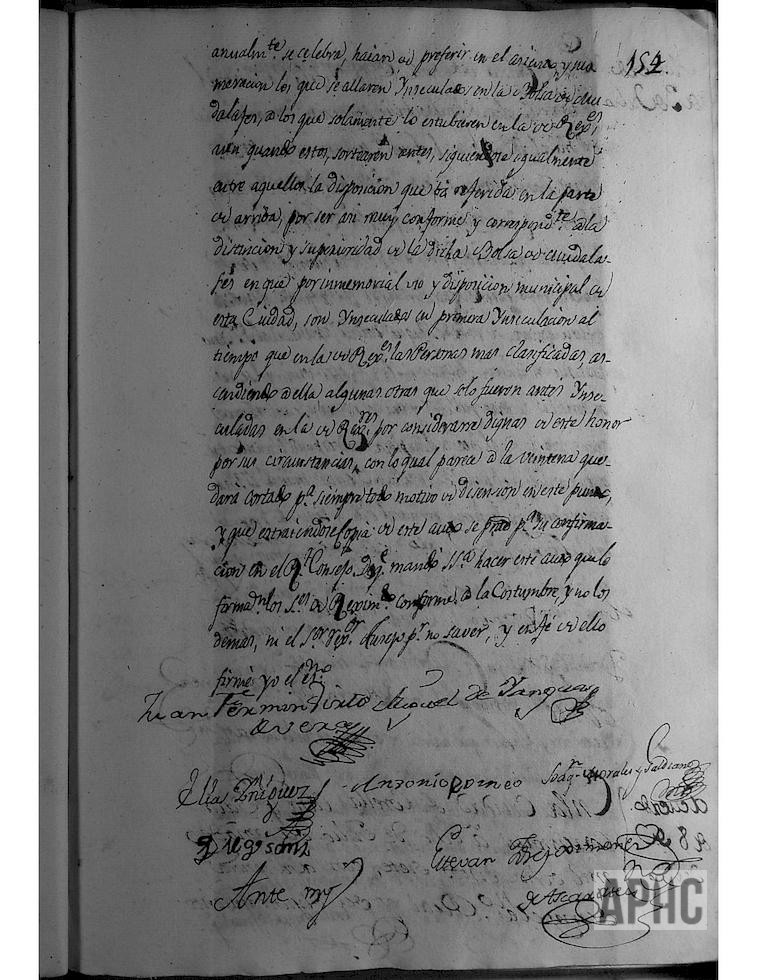 154.
anualmte. se celebra, haian de preferir en el asiento y nu
meracion los que se allaren Ynseculados en la Bolsa de Ciu
dalafes, a los que solamente lo estubieren en la de Rexes,
aun quando estos, sorteasen antes, siguiendose igualmente
entre aquellos la disposicion que va referida en la parte
de arriva, por ser asi muy conforme y correspondte. a la
distincion y superioridad de la dicha Bolsa de Ciudala-
fes en que por inmemorial uso y disposicion municipal de
esta Ciudad, son Ynseculadas en primera Ynseculacion al
tiempo que en la de Rexes, las Personas mas clasificadas, as-
cendiendo a ella algunas otras que solo fueron antes Ynse-
culadas en la de Rexres, por considerarse dignas de este honor
por sus circunstancias, con lo qual parece a la veintena que-
dará cortado pa. siempre todo motivo de disension en este punto,
y que extraiendose Copia de este auto se pida pr. su confirma-
cion en el Rl. Consejo. De qe. mandó SSa. hacer este auto que lo
firman los Ses. de Reximto. conforme a la Costumbre, y no los
demas, ni el Sor. Rexor. Asrejo pr. no saver, y en fé de ello
firmé yo el esno.
Juan Fermin Miguel de Yanguas
Antonio Borneo Joaqn. Morales y
Diego Sanz
Estevan
Ante my
APHC